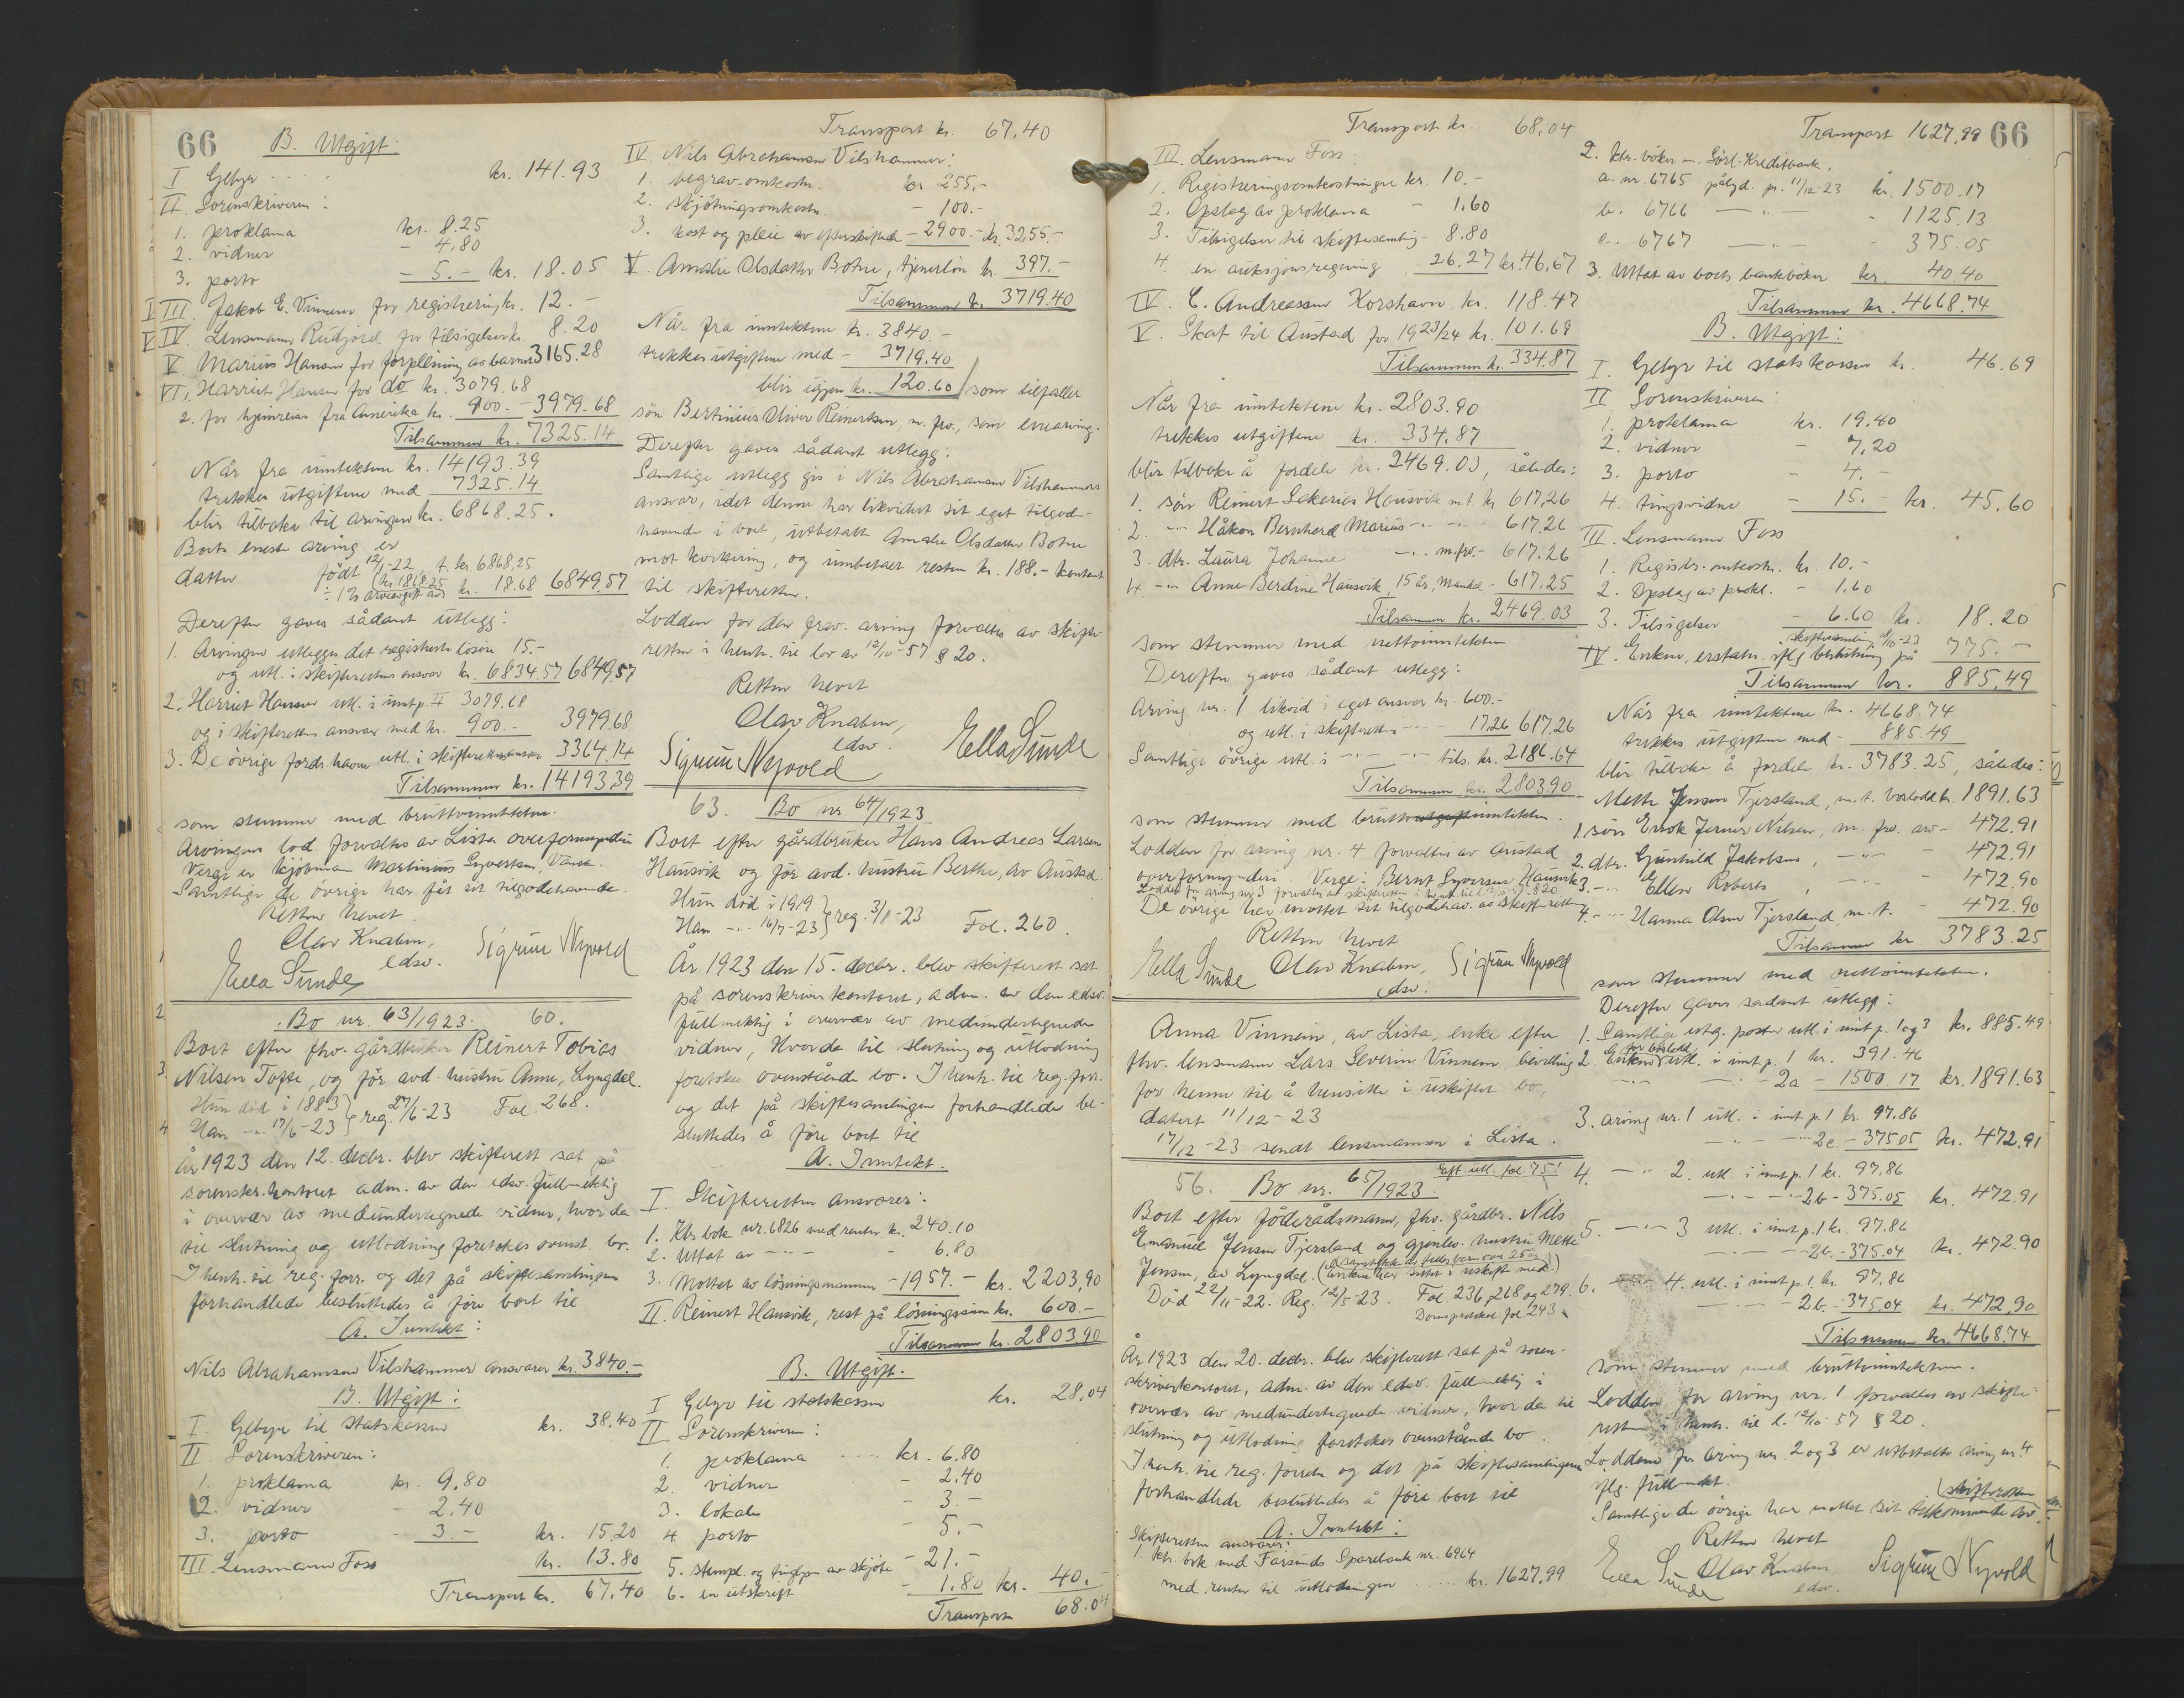 66
B. Utgift:
I Gebyr kr. 141.93
II Sorenskriveren:
1. proklama kr. 8.25
2. vidner - 4.80
3. porto - 5.- kr. 18.05
III. Jakob E. Vinnem for registrering kr. 12.-
IV. Lensmann Rudjord for tilsigelser kr. 8.20
V Marius Hansen for forpleining av barnet 3165.28
VI. Harriet Hansen for do kr. 3079.68
2. for hjemreise fra Amerika kr. 900.- - 3979.68
Tilsammen kr. 7325.14
Når fra inntektene kr. 14193.39
trekkes utgiftene med 7325.14
blir tilbake til arvingen kr. 6868.25.
Boets eneste arving er
datter født 12/1-22, t. kr. 6868.25
÷ 1% arveavgift av kr. 1868.25 kr. 18.68 6849.57
Derefter gaves sådant utlegg:
1. Arvingen utlegges det registrerte løsøre 15.-
og utl. i skifterettens ansvar kr. 6834.57 6849.57
2. Harriet Hansen utl. i innt.p. II 3079.68
og i skifterettens ansvar med kr. 900.- 3979.68
3. De övrige fordr.havere utl. i skifterettens ansvar 3364.14
Tilsammen kr. 14193.39
som stemmer med bruttoinntekten.
Arvingens lod forvaltes av Lista overformynderi
Verge er kjøbmann Martinius Syvertsen, Vanse.
Samtlige de övrige har fåt sit tilgodehavende.
Retten hevet.
Olav Knaben,
edsv.
Sigrun Nyvold
Ella Sunde
Bo nr. 63/1923. 60.
Boet efter fhv. gårdbruker Reinert Tobias
Nilsen Tofte, og för avd. hustru Anne, Lyngdal.
Hun död i 1883
Han -"- 17/6-23 } reg. 27/6-23 Fol. 268.
År 1923 den 12. decbr. blev skifterett sat på
sorenskr. kontoret adm. av den edsv. fullmektig
i overvær av medundertegnede vidner, hvor da
til slutning og utlodning foretokes ovenst. bo.
I henh. til reg. forr. og det på skiftesamlingen
forhandlede besluttedes å före boet til
A. Inntekt:
Nils Abrahamsen Vilshammer ansvarer kr. 3840.-
B. Utgift:
I Gebyr til statskassen kr. 38.40
II Sorenskriveren:
1. proklama kr. 9.80
2. vidner - 2.40
3. porto - 3.- kr. 15.20
III Lensmann Foss kr. 13.80
Transport kr. 67.40
Transport kr. 67.40
IV Nils Abrahamsen Vilshammer:
1. begrav.omkostn. kr 255.-
2. skjötningsomkostn. - 100.-
3. kost og pleie av efterskiftede - 2900.- kr. 3255.-
V. Amalie Olsdatter Botne, tjenerlön kr. 397.-
Tilsammen kr. 3719.40
Når fra inntektene kr. 3840.-
trekkes utgiftene med - 3719.40
blir igjen kr. 120.60 som tilfaller
sön Bertinius Oliver Reinertsen, m. frv., som enearving.
Derefter gaves sådant utlegg:
Samtlige utlegg gis i Nils Abrahamsen Vilshammers
ansvar, idet denne har likvidert sit eget tilgode-
havende i boet, utbetalt Amalie Olsdatter Botne
mot kvittering, og innbetalt resten kr. 188.- kontant
til skifteretten.
Lodden for den frav. arving forvaltes av skifte-
retten i henh. til lov av 12/10-57 § 20.
Retten hevet
Olav Knaben,
edsv.
Sigrun Nyvold
Ella Sunde
63. Bo nr. 64/1923
Boet efter gårdbruker Hans Andreas Larsen
Hausvik og för avd. hustru Berthe, av Austad.
Hun död i 1919
Han -"- 16/7-23 } reg. 3/8-23 Fol. 260.
År 1923 den 15. decbr. blev skifterett sat
på sorenskriverkontoret, adm. av den edsv.
fullmektig i overvær av medundertegnede
vidner, hvor da til slutning og utlodning
foretokes ovenstående bo. I henh. til reg. forr.
og det på skiftesamlingen forhandlede be-
sluttedes å före boet til
A. Inntekt.
I Skifteretten ansvarer:
1. Ktr. bok nr. 6826 med renter kr. 240.10
2. Uttat av -"- - 6.80
3. Mottat av lösningsmannen - 1957.- kr. 2203.90
II. Reinert Hausvik, rest på lösningssum kr. 600.-
Tilsammen kr. 2803.90
B. Utgift.
I Gebyr til statskassen kr. 28.04
II Sorenskriveren:
1. proklama kr. 6.80
2. vidner - 2.40
3. lokale - 3.-
4. porto - 5.-
5. stempl. og tinglysn. av skjöte - 21.-
6. en utskrift - 1.80 kr. 40.-
Transport 68.04
Transport kr. 68.04
III. Lensmann Foss:
1. Registreringsomkostninger kr. 10.-
2. Opslag av proklama - 1.60
3. Tilsigelser til skiftesamling - 8.80
4. en auksjonsregning - 26.27 kr. 46.67
IV. C. Andreassen Korshavn kr. 118.47
V. Skat til Austad for 1923/24 kr. 101.69
Tilsammen kr. 334.87
Når fra inntektene kr. 2803.90
trekkes utgiftene kr. 334.87
blir tilbake å fordele kr. 2469.03, således:
1. sön Reinert Sakarias Hausvik m.t. kr 617.26
2. -"- Håkon Bernhard Marius -"- 617.26
3. dtr. Laura Johanne -"- m.frv.- 617.26
4 -"- Anne Berdine Hausvik, 15 år, Mandal - 617.25
Tilsammen kr. 2469.03
som stemmer med nettoinntekten
Derefter gaves sådant utlegg:
Arving nr. 1 likvid i eget ansvar kr. 600.-
og utl. i skifterett.s -"- 17.26 617.26
Samtlige övrige utl. i -"- -"- tils. kr. 2186.64
Tilsammen kr. 2803.90
som stemmer med bruttoutgiftinntekten.
Lodden for arving nr. 4 forvaltes av Austad
overformynderi. Verge: Bernt Syversen Hausvik
Lodden for arving nr 3 forvaltes av skifteretten i henh. til l. 12/10-57 § 20
De övrige har mottet sit tilgodehav. av skifteretten
Retten hevet
Ella Sunde
Olav Knaben,
edsv.
Sigrun Nyvold
Anna Vinnem, av Lista, enke efter
fhv. lensmann Lars Severin Vinnem, bevilling
for henne til å hensitte i uskiftet bo,
datert 11/12-23
17/12-23 sendt lensmannen i Lista.
56. Bo nr. 65/1923 Eft. utl. fol 75!
Boet efter föderådsmann, fhv. gårdbr. Nils
Emanuel Jensen Tjersland og gjenlev. hustru Mette
Jensen, av Lyngdal. (Enken har sittet i uskift med
Död 22/11-22. Reg. 12/5-23. Fol. 236, 268 og 279.
Domsprotokol fol 243
År 1923 den 20. decbr. blev skifterett sat på soren-
skriverkontoret, adm. av den edsv. fullmektig i
overvær av medundertegnede vidner, hvor da til
slutning og utlodning foretokes ovenstående bo.
I henh. til reg. forretn. og det på skiftesamlingen
forhandlede besluttedes å före boet til
A. Inntekt:
Skifteretten ansvarer:
1. ktr. bok med Farsunds Sparebank nr. 6964
med renter til utlodningen kr. 1627.99
Transport 1627.99 66
2. ktr. böker m. Sörl. Kreditbank.
a. nr. 6765 pålyd. pr. 11/12-23 kr. 1500.17
b. 6766 -"- - 1125.13
c. 6767 -"- - 375.05
3. Uttat av boets bankböker kr. 40.40
Tilsammen kr. 4668.74
B. Utgift:
I. Gebyr til statskassen kr. 46.69
II Sorenskriveren:
1. proklama kr. 19.40
2. vidner - 7.20
3. porto - 4.-
4. tingsvidne - 15.- kr. 45.60
III. Lensmann Foss
1. Registr. omkostn. kr. 10.-
2. Opslag av prokl. - 1.60
3. Tilsigelser - 6.60 kr. 18.20
IV. Enken, erstatn. iflg beslutning på skiftesamling -23 775.-
Tilsammen kr. 885.49
Når fra inntektene kr. 4668.74
trekkes utgiftene med - 885.49
blir tilbake å fordele kr. 3783.25, således:
Mette Jensen Tjersland, m.t. boslodd kr. 1891.63
1. sön Enok Jerner Nilsen, m. frv. arv - 472.91
2. dtr. Gunhild Jakobsen, -"- - 472.91
3. -"- Ellen Roberts, -"- - 472.90
4. -"- Hanna Olsen Tjersland m.t. - 472.90
Tilsammen kr 3783.25
som stemmer med nettoinntekten.
Derefter gaves sådant utlegg:
1. Samtlige utg. poster utl. i innt p. 1 og 3 kr. 885.49
2. Enken for boslodd utl. i innt p. 1 kr. 391.46
-"- -"- 2a - 1500.17 kr. 1891.63
3. arving nr. 1 utl. i innt p. 1 kr. 97.86
-"- -"- 2c. - 375.05 kr. 472.91
4. -"- 2. utl. i innt p. 1 kr. 97.86
-"- -"- 2b - 375.05 kr. 472.91
5. -"- 3 utl. i innt p. 1 kr. 97.86
-"- -"- 2b. - 375.04 kr. 472.90
6. -"- 4. utl. i innt p. 1 kr. 97.86
-"- -"- 2b. - 375.04 kr. 472.90
Tilsammen kr. 4668.74
som stemmer med bruttoinntekten.
Lodden for arving nr. 1 forvaltes av skifte-
retten i henh. til l. 12/10-57 § 20.
Loddene for arving nr. 2 og 3 er utbetalte arving nr. 4
iflg. fullmakt.
Samtlige de övrige har mottet sit tilkommende av skifteretten
Retten hevet
Ella Sunde
Olav Knaben,
edsv.
Sigrun Nyvold